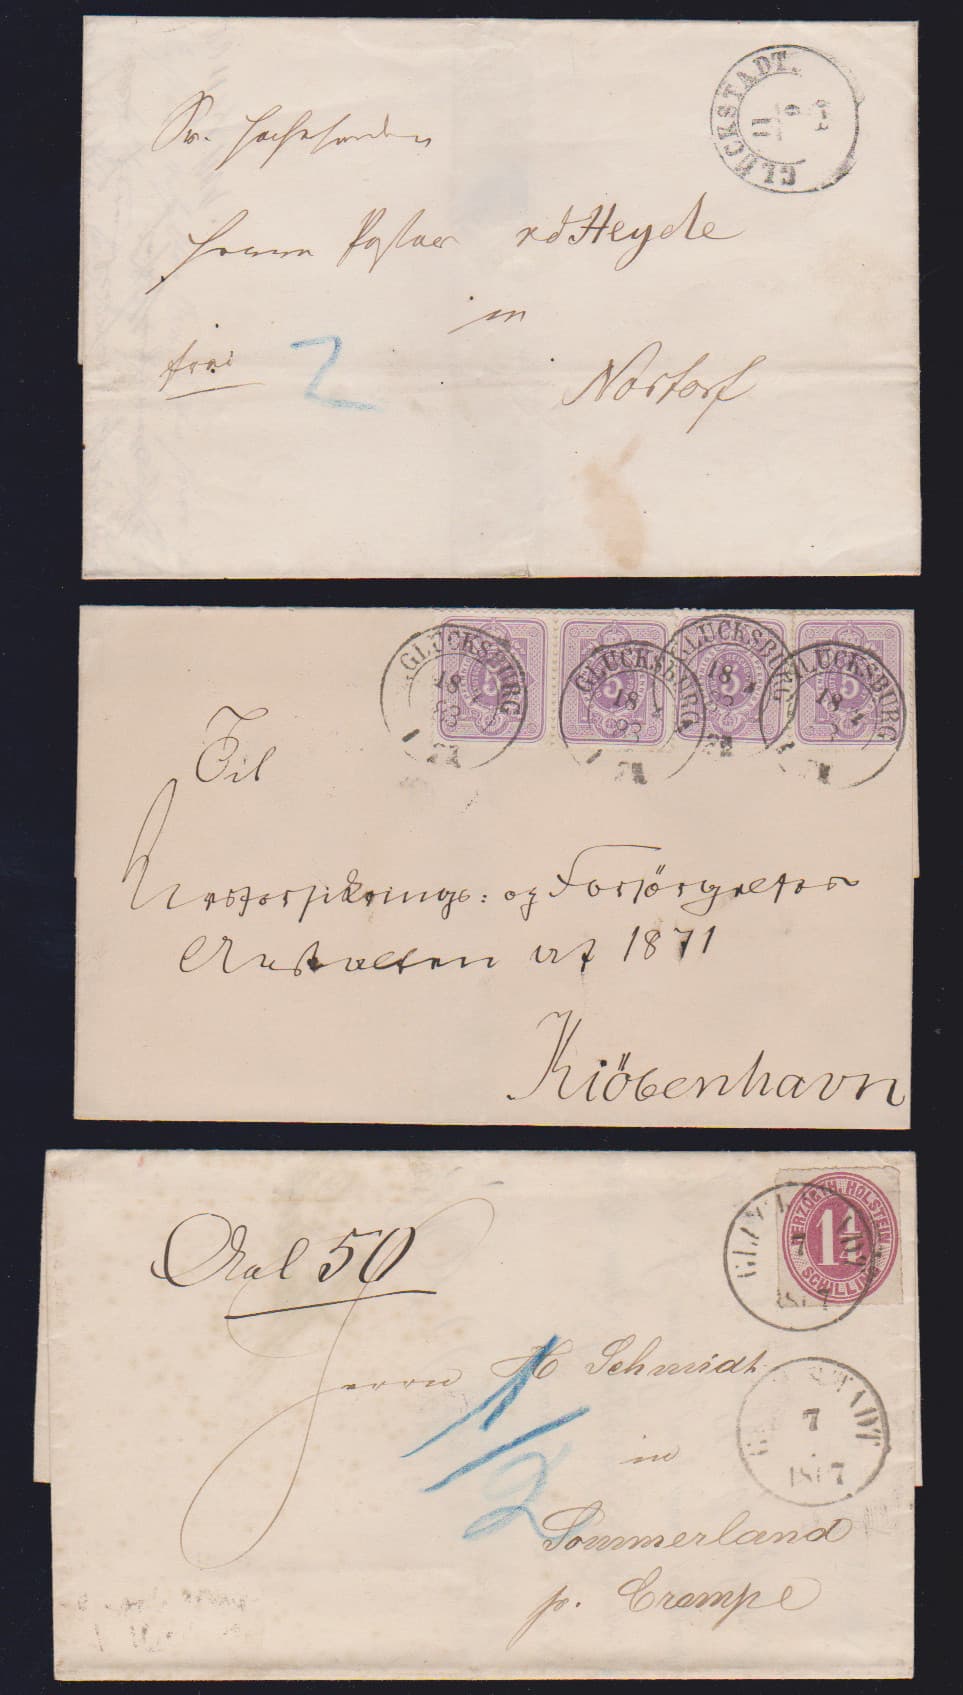 GLÜCKSTADT.
11
Sr. Hochehrwürden
Herrn Pastor v d Heyde
in
frei
2
Nortorf
GLÜCKSBURG
18
83
5
GLÜCKSBURG
18
4
83
5
GLÜCKSBURG
18
4
5
GLÜCKSBURG
18
4
5
Til
Livsforsikrings: og Forsörgelses
Anstalten af 1871
Kiöbenhavn
HERZOGTH. HOLSTEIN
1¼
SCHILLING
7
1867
Aal 50
Herrn H Schmidt
1/2
GLÜCKSTADT
7
1867
in
Sommerland
pr. Crempe